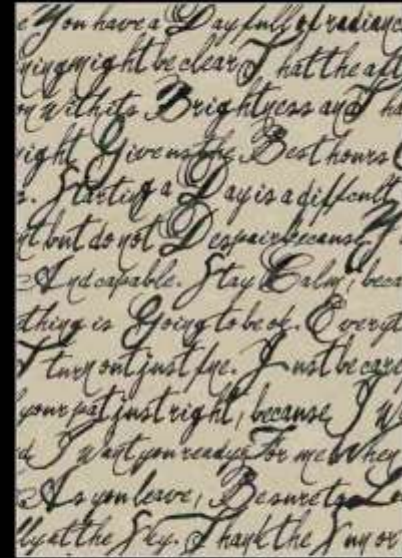 e You have a Day full of radianc
ning might be clear That the aft
on with its Brightness and Tha
ight Give us the Best hours
s. Starting a Day is a difficult
nt but do not Despair because Y
And capable. Stay Calm, beca
thing is Going to be ok. Everyt
turn out just fine. Just be care
your just right, because I W
d I want you ready For me When
As you leave, Be sure to Lo
lly at the Sky. Thank the Sun or